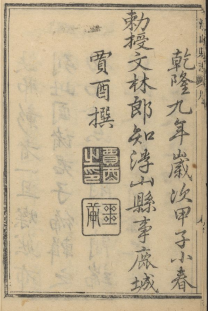 乾隆九年歲次甲子小春
勅授文林郎知浮山縣事鹿城
賈酉撰